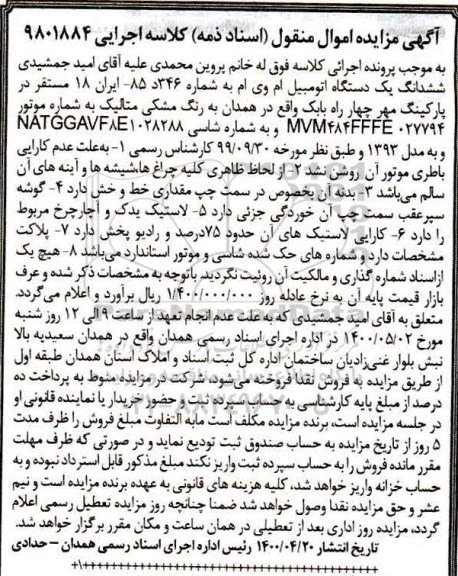 آگهی مزایده اموال منقول (اسناد ذمه) کلاسه اجرایی ۹۸۰۱۸۸۴
به موجب پرونده اجرائی کلاسه فوق له خانم پروین محمدی علیه آقای امید جمشیدی
ششدانگ یک دستگاه اتومبیل ام وی ام به شماره ۳۴۶د ۸۵- ایران ۱۸ مستقر در
پارکینگ مهر چهار راه بابک واقع در همدان به رنگ مشکی متالیک به شماره موتور
MVM۴۸۴FFFE ۰۲۷۷۹۴ و به شماره شاسی NATGGAVF۸E۱۰۲۸۲۸۸
و به مدل ۱۳۹۳ و طبق نظر مورخه ۹۹/۰۹/۳۰ کارشناس رسمی ۱- به‌علت عدم کارایی
باطری موتور آن روشن نشد ۲- از لحاظ ظاهری کلیه چراغ ها،شیشه ها و آینه های آن
سالم می‌باشد ۳- بدنه آن بخصوص در سمت چپ مقداری خط و خش دارد ۴- گوشه
سپرعقب سمت چپ آن خوردگی جزئی دارد ۵- لاستیک یدک و آچارچرخ مربوط
را دارد ۶- کارایی لاستیک های آن حدود ۷۵درصد و رادیو پخش دارد ۷- پلاکت
مشخصات دارد و شماره های حک شده شاسی و موتور استاندارد می‌باشد ۸- هیچ یک
ازاسناد شماره گذاری و مالکیت آن رویت نگردید باتوجه به مشخصات ذکر شده و عرف
بازار قیمت پایه آن به نرخ عادله روز ۱/۴۰۰/۰۰۰/۰۰۰ ریال برآورد و اعلام می‌گردد.
متعلق به آقای امید جمشیدی که به علت عدم انجام تعهد از ساعت ۹ الی ۱۲ روز شنبه
مورخ ۱۴۰۰/۰۵/۰۲ در اداره اجرای اسناد رسمی همدان واقع در همدان سعیدیه بالا
نبش بلوار غنی‌زادیان ساختمان اداره کل ثبت اسناد و املاک استان همدان طبقه اول
از طریق مزایده به فروش نقدا فروخته می‌شود، شرکت در مزایده منوط به پرداخت ده
درصد از مبلغ پایه کارشناسی به حساب سپرده ثبت و حضور خریدار یا نماینده قانونی او
در جلسه مزایده است، برنده مزایده مکلف است مابه التفاوت مبلغ فروش را ظرف مدت
۵ روز از تاریخ مزایده به حساب صندوق ثبت تودیع نماید و در صورتی که ظرف مهلت
مقرر مانده فروش را به حساب سپرده ثبت واریز نکند مبلغ مذکور قابل استرداد نبوده و به
حساب خزانه واریز خواهد شد، کلیه هزینه های قانونی به عهده برنده مزایده است و نیم
عشر و حق مزایده نقدا وصول خواهد شد ضمنا چنانچه روز مزایده تعطیل رسمی اعلام
گردد، مزایده روز اداری بعد از تعطیلی در همان ساعت و مکان مقرر برگزار خواهد شد.
تاریخ انتشار ۱۴۰۰/۰۴/۲۰ رئیس اداره اجرای اسناد رسمی همدان - حدادی